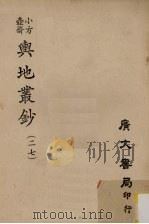 小方
壺齋
輿地叢鈔
(二七)
廣文書局
印行